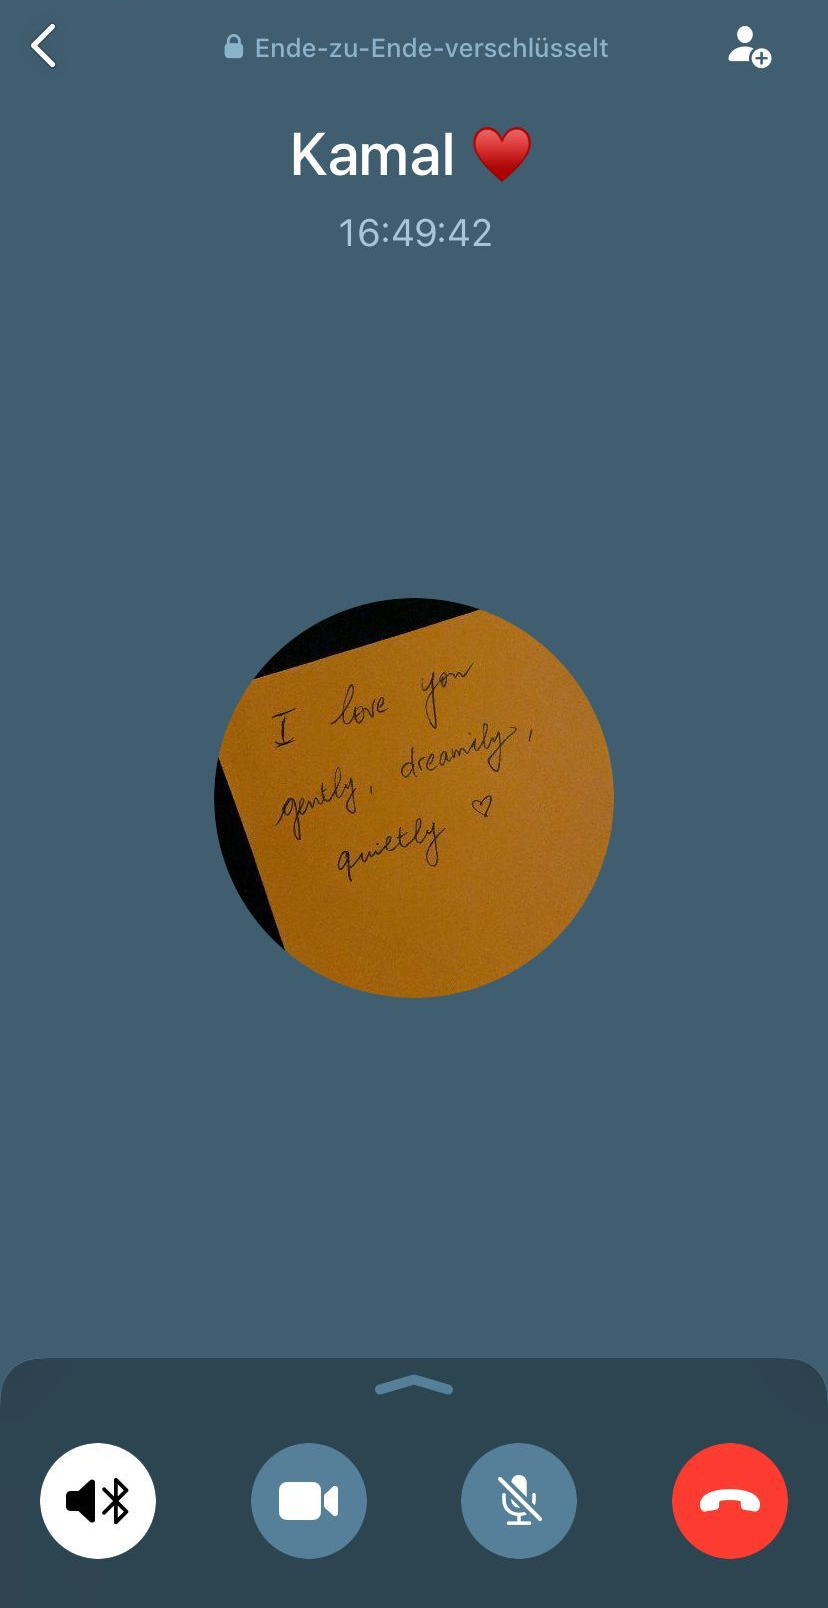 Ende-zu-Ende-verschlüsselt
Kamal ♥️
16:49:42
I love you
gently, dreamily,
quietly ♡